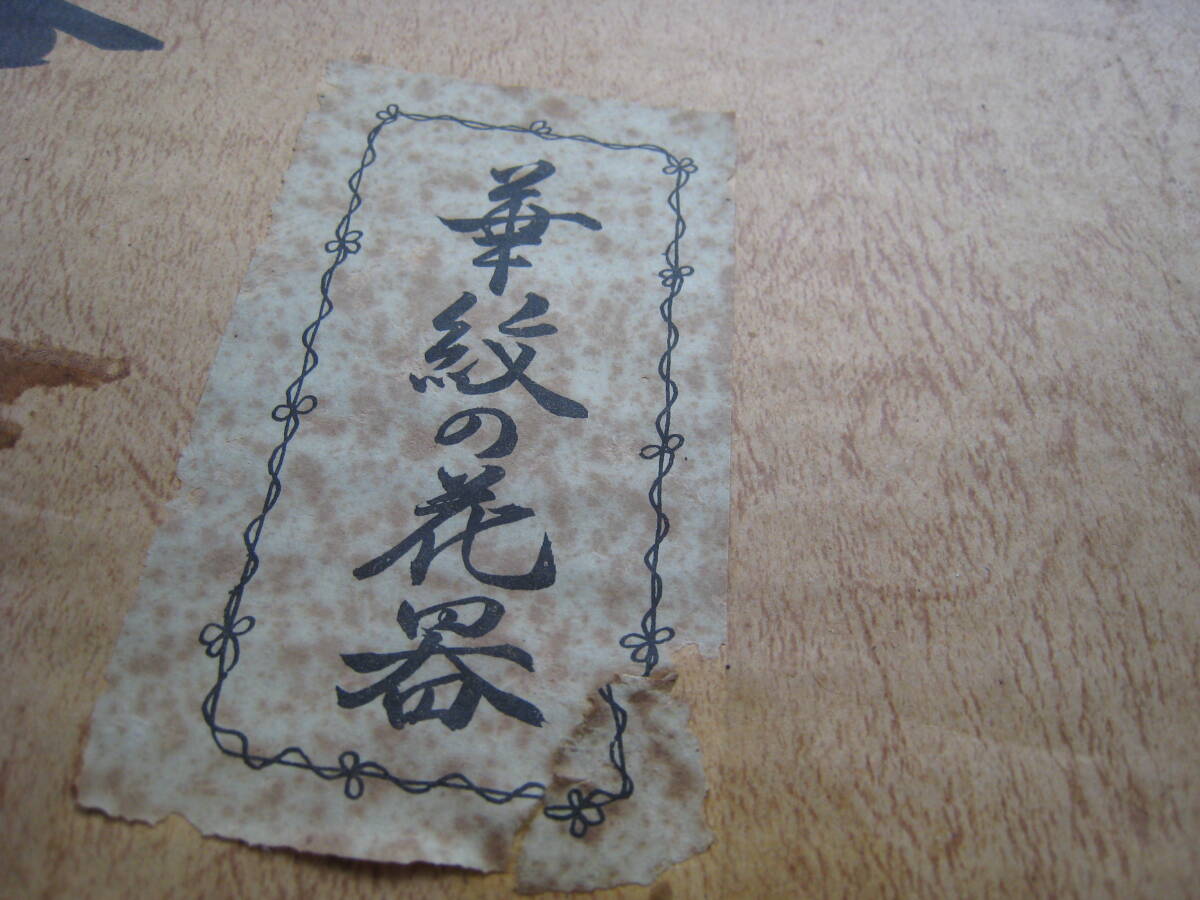 華紋の花器